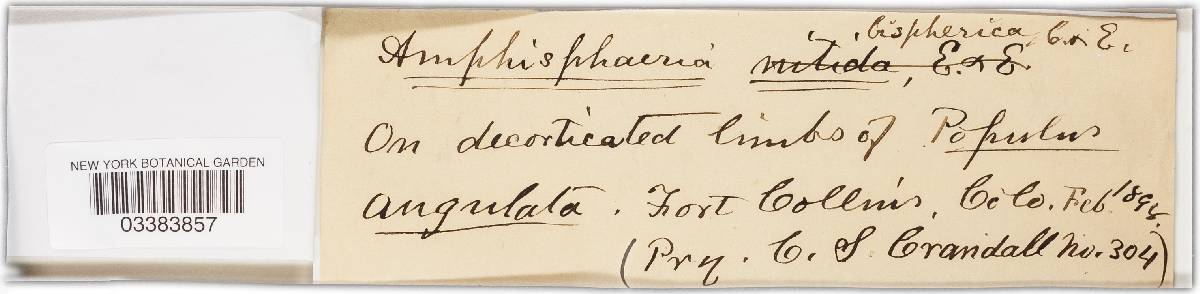 NEW YORK BOTANICAL GARDEN
03383857
bispherica C. & E.
Amphisphaeria nitida, E. & E
On decorticated limbs of Populus
angulata. Fort Collins, Colo. Feb.
(Pry. C. S. Crandall No. 304)